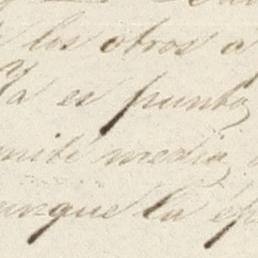 los otros a
Ya es punto,
mite media,
unque la ep